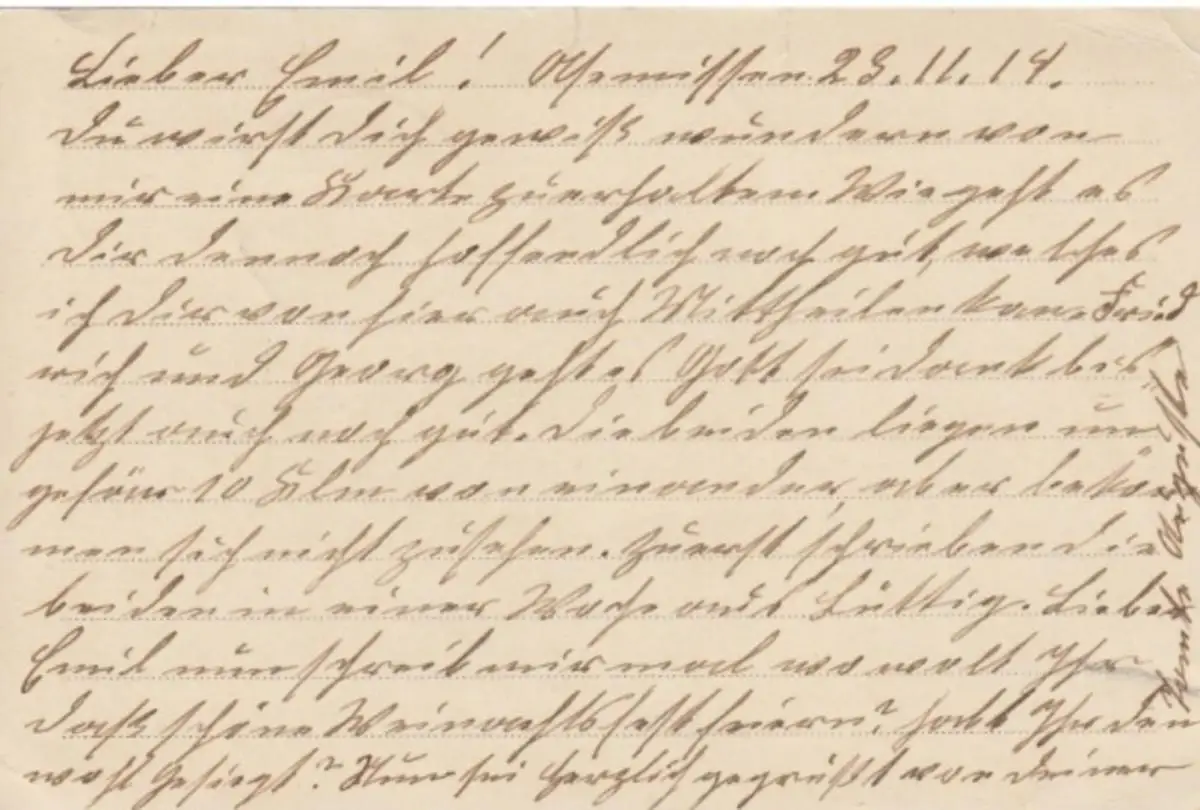 Lieber Emil! Asemissen 23.11.14.
Du wirst Dich gewiß wundern von
mir eine Karte zu erhalten. Wie geht es
Dir dennoch hoffendlich noch gut, welches
ich Dir von hier auch Mittheilen kan. Fried
rich und Georg geht es Gott sei dank bis
jetzt auch noch gut. Die beiden liegen un
gefär 10 Klm von einander, aber bekom
men sich nicht zusehen. Zuerst schrieben die
beiden in einer Woche aus Lüttig. Lieber
Emil nun schreib mir mal wo wolt Ihr
daß schöne Weinachtsfest feiern? habt Ihr den
wohl Gesiegt? Nun sei Herzlich gegrüßt von deiner
Tante Auguste